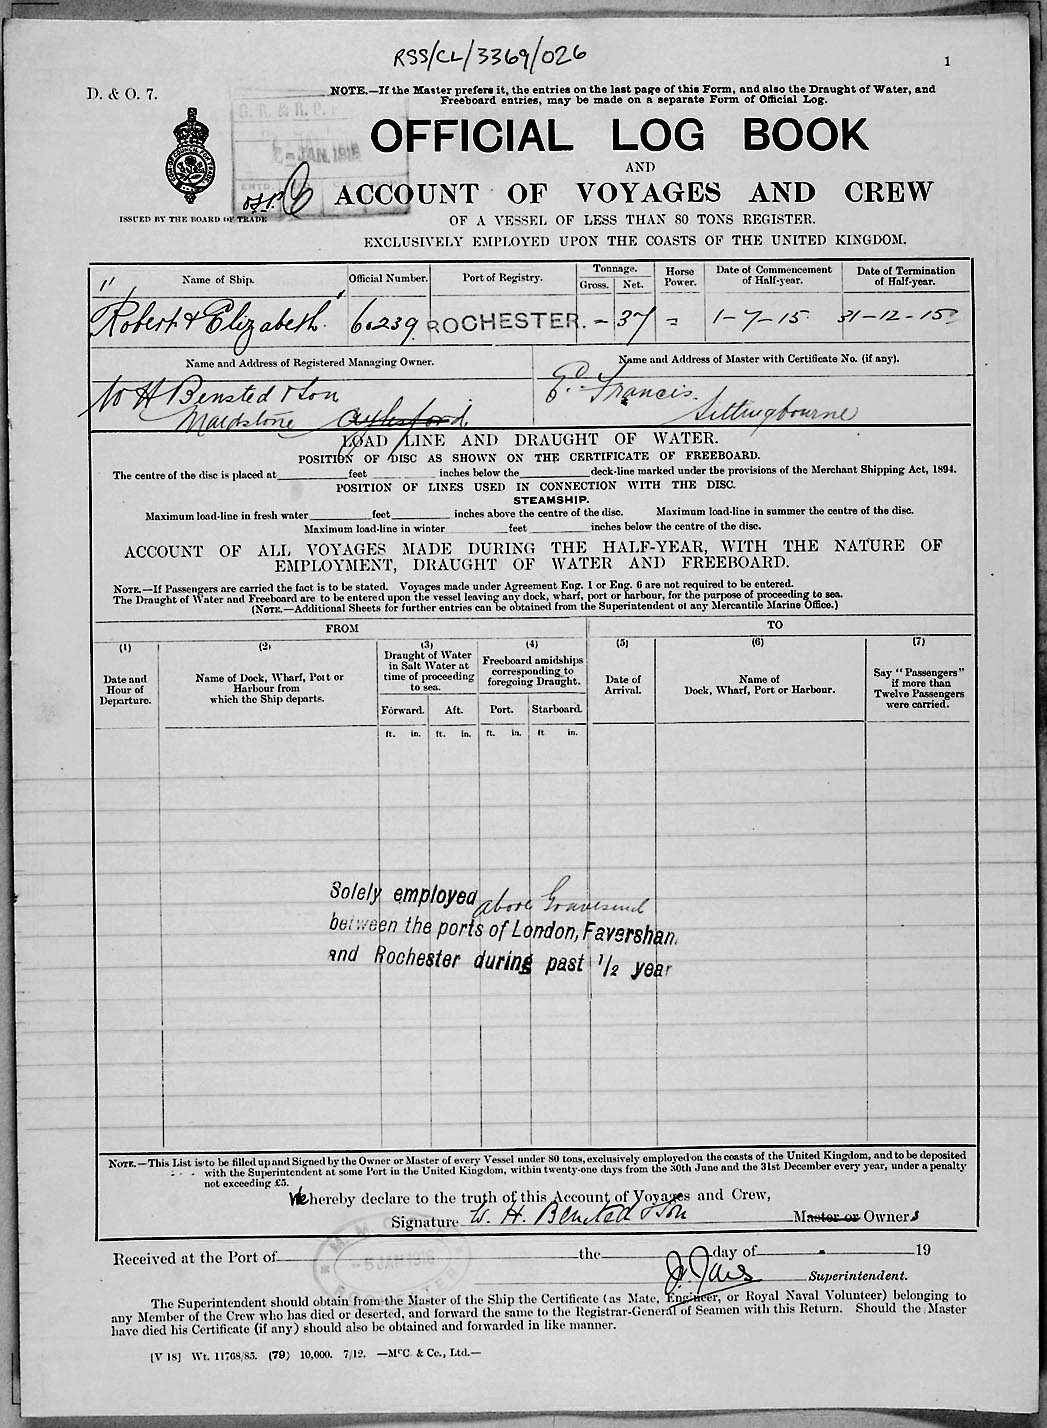 RSS/CL/3369/026
1
D. & O. 7.
NOTE.—If the Master prefers it, the entries on the last page of this Form, and also the Draught of Water, and
Freeboard entries, may be made on a separate Form of Official Log.
G. R. & R. O.
JAN. 1916
OFFICIAL LOG BOOK
AND
ACCOUNT OF VOYAGES AND CREW
ISSUED BY THE BOARD OF TRADE
OF A VESSEL OF LESS THAN 80 TONS REGISTER.
EXCLUSIVELY EMPLOYED UPON THE COASTS OF THE UNITED KINGDOM.
Name of Ship. Official Number. Port of Registry. Tonnage. Gross. Net. Horse Power. Date of Commencement of Half-year. Date of Termination of Half-year.
"Robert & Elizabeth" 60239 ROCHESTER. - 37 = 1-7-15. 31-12-15
Name and Address of Registered Managing Owner. Name and Address of Master with Certificate No. (if any).
W H Bensted & Son E. Francis.
Maidstone Aylesford. Sittingbourne
LOAD LINE AND DRAUGHT OF WATER.
POSITION OF DISC AS SHOWN ON THE CERTIFICATE OF FREEBOARD.
The centre of the disc is placed at feet inches below the deck-line marked under the provisions of the Merchant Shipping Act, 1894.
POSITION OF LINES USED IN CONNECTION WITH THE DISC.
STEAMSHIP.
Maximum load-line in fresh water feet inches above the centre of the disc. Maximum load-line in summer the centre of the disc.
Maximum load-line in winter feet inches below the centre of the disc.
ACCOUNT OF ALL VOYAGES MADE DURING THE HALF-YEAR, WITH THE NATURE OF
EMPLOYMENT, DRAUGHT OF WATER AND FREEBOARD.
NOTE.—If Passengers are carried the fact is to be stated. Voyages made under Agreement Eng. 1 or Eng. 6 are not required to be entered.
The Draught of Water and Freeboard are to be entered upon the vessel leaving any dock, wharf, port or harbour, for the purpose of proceeding to sea.
(NOTE.—Additional Sheets for further entries can be obtained from the Superintendent of any Mercantile Marine Office.)
FROM TO
(1) (2) (3) (4) (5) (6) (7)
Date and Hour of Departure. Name of Dock, Wharf, Port or Harbour from which the Ship departs. Draught of Water in Salt Water at time of proceeding to sea. Freeboard amidships corresponding to foregoing Draught. Date of Arrival. Name of Dock, Wharf, Port or Harbour. Say "Passengers" if more than Twelve Passengers were carried.
Forward. Aft. Port. Starboard.
ft. in. ft. in. ft. in. ft in.
Solely employed above Gravesend
between the ports of London, Faversham
and Rochester during past 1/2 year
NOTE.—This List is to be filled up and Signed by the Owner or Master of every Vessel under 80 tons, exclusively employed on the coasts of the United Kingdom, and to be deposited
with the Superintendent at some Port in the United Kingdom, within twenty-one days from the 30th June and the 31st December every year, under a penalty
not exceeding £5.
We hereby declare to the truth of this Account of Voyages and Crew,
Signature W. H. Bensted & Son Master or Owners
Received at the Port of the day of 19
5 JAN 1916
ROCHESTER
Superintendent.
The Superintendent should obtain from the Master of the Ship the Certificate (as Mate, Engineer, or Royal Naval Volunteer) belonging to
any Member of the Crew who has died or deserted, and forward the same to the Registrar-General of Seamen with this Return. Should the Master
have died his Certificate (if any) should also be obtained and forwarded in like manner.
[V 18] Wt. 11768/85. (79) 10,000. 7/12. —McC. & Co., Ltd.—